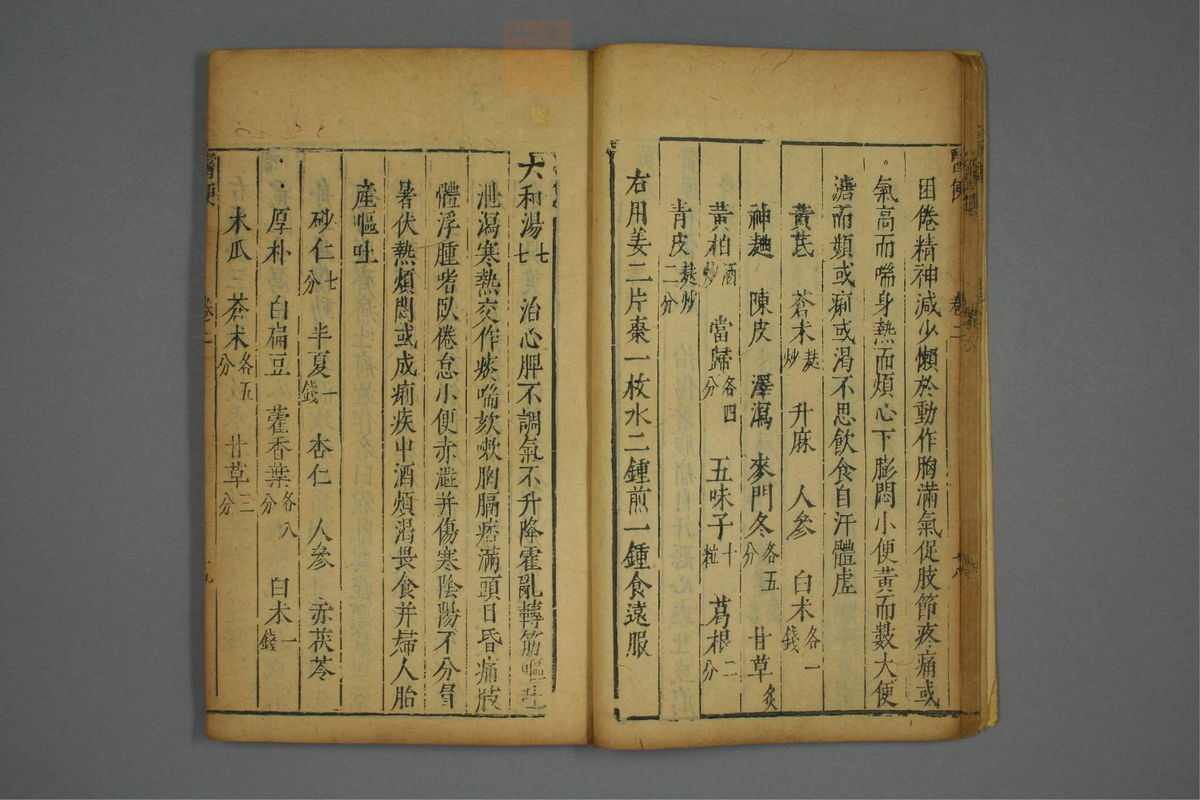 醫便
卷二
十八
困倦精神減少懶於動作胸滿氣促肢節疼痛或
氣高而喘身熱而煩心下膨悶小便黃而數大便
溏而頻或痢或渴不思飲食自汗體虛
黃芪 蒼朮麩炒 升麻 人參 白朮各一錢
神麯 陳皮 澤瀉 麥門冬各五分 甘草炙
黃柏酒炒 當歸各四分 五味子十粒 葛根二分
青皮麩炒二分
右用姜二片棗一枚水二鍾煎一鍾食遠服
六和湯七七 治心脾不調氣不升降霍亂轉筋嘔吐
泄瀉寒熱交作痰喘欬嗽胸膈痞滿頭目昏痛肢
體浮腫嗜臥倦怠小便赤澀并傷寒陰陽不分冒
暑伏熱煩悶或成痢疾中酒煩渴畏食并婦人胎
產嘔吐
砂仁七分 半夏一錢 杏仁 人參 赤茯苓
厚朴 白扁豆 藿香葉各八分 白朮一錢
木瓜三 蒼朮各五分 甘草三分
醫便